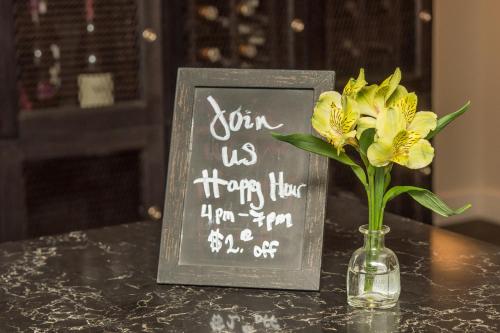 Join
us
Happy Hour
4pm-7pm
$2.⁰ off